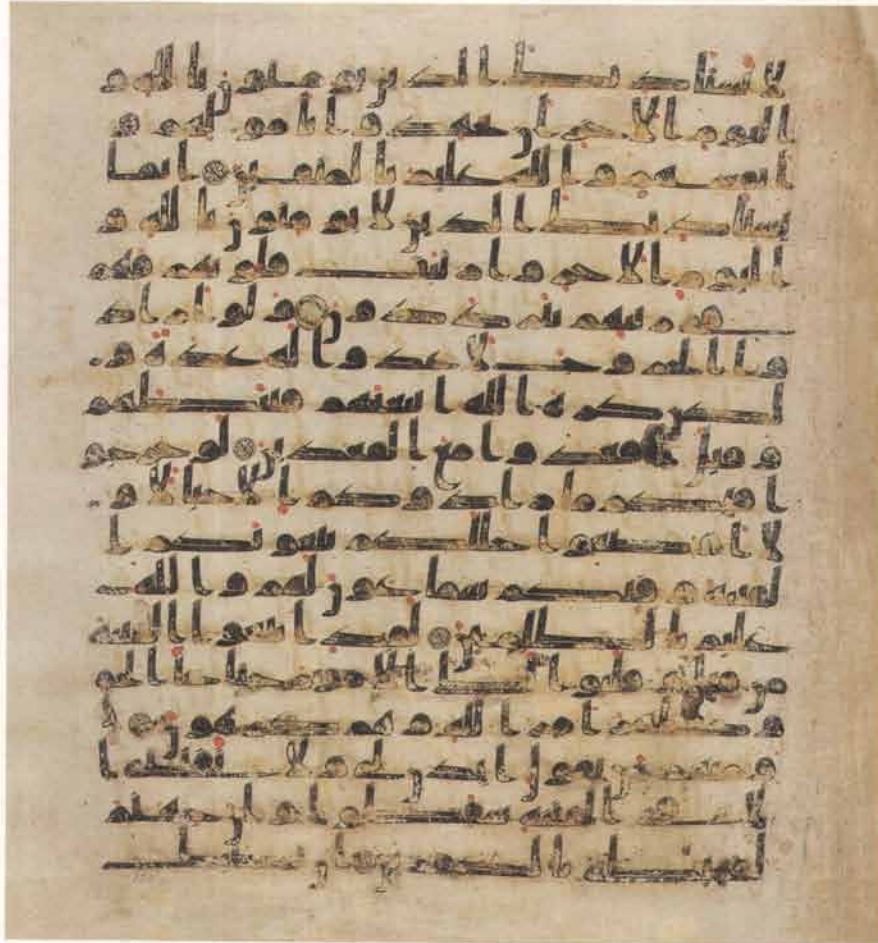 لا يستاذنك الذين يومنون بالله و
اليوم الاخر ان يجهدوا باموالهم و
انفسهم والله عليم بالمتقين انما
يستاذنك الذين لا يومنون بالله و
اليوم الاخر وارتابت قلوبهم فهم
في ريبهم يترددون ولو اراد
وا الخروج لاعدوا له عدة و
لكن كره الله انبعثهم فثبطهم
وقيل اقعدوا مع القعدين لو خرجو
ا فيكم ما زادوكم الا خبالا و
لا اوضعوا خللكم يبغونكم ا
لفتنة وفيكم سمعون لهم والله
عليم بالظلمين لقد ابتغوا الفتنة
من قبل وقلبوا لك الامور حتى جا الحق
وظهر امر الله وهم كرهون
ومنهم من يقول ايذن لي ولا تفتني ا
لا في الفتنة سقطوا وان جهنم
لمحيطة بالكفرين ان تصبك